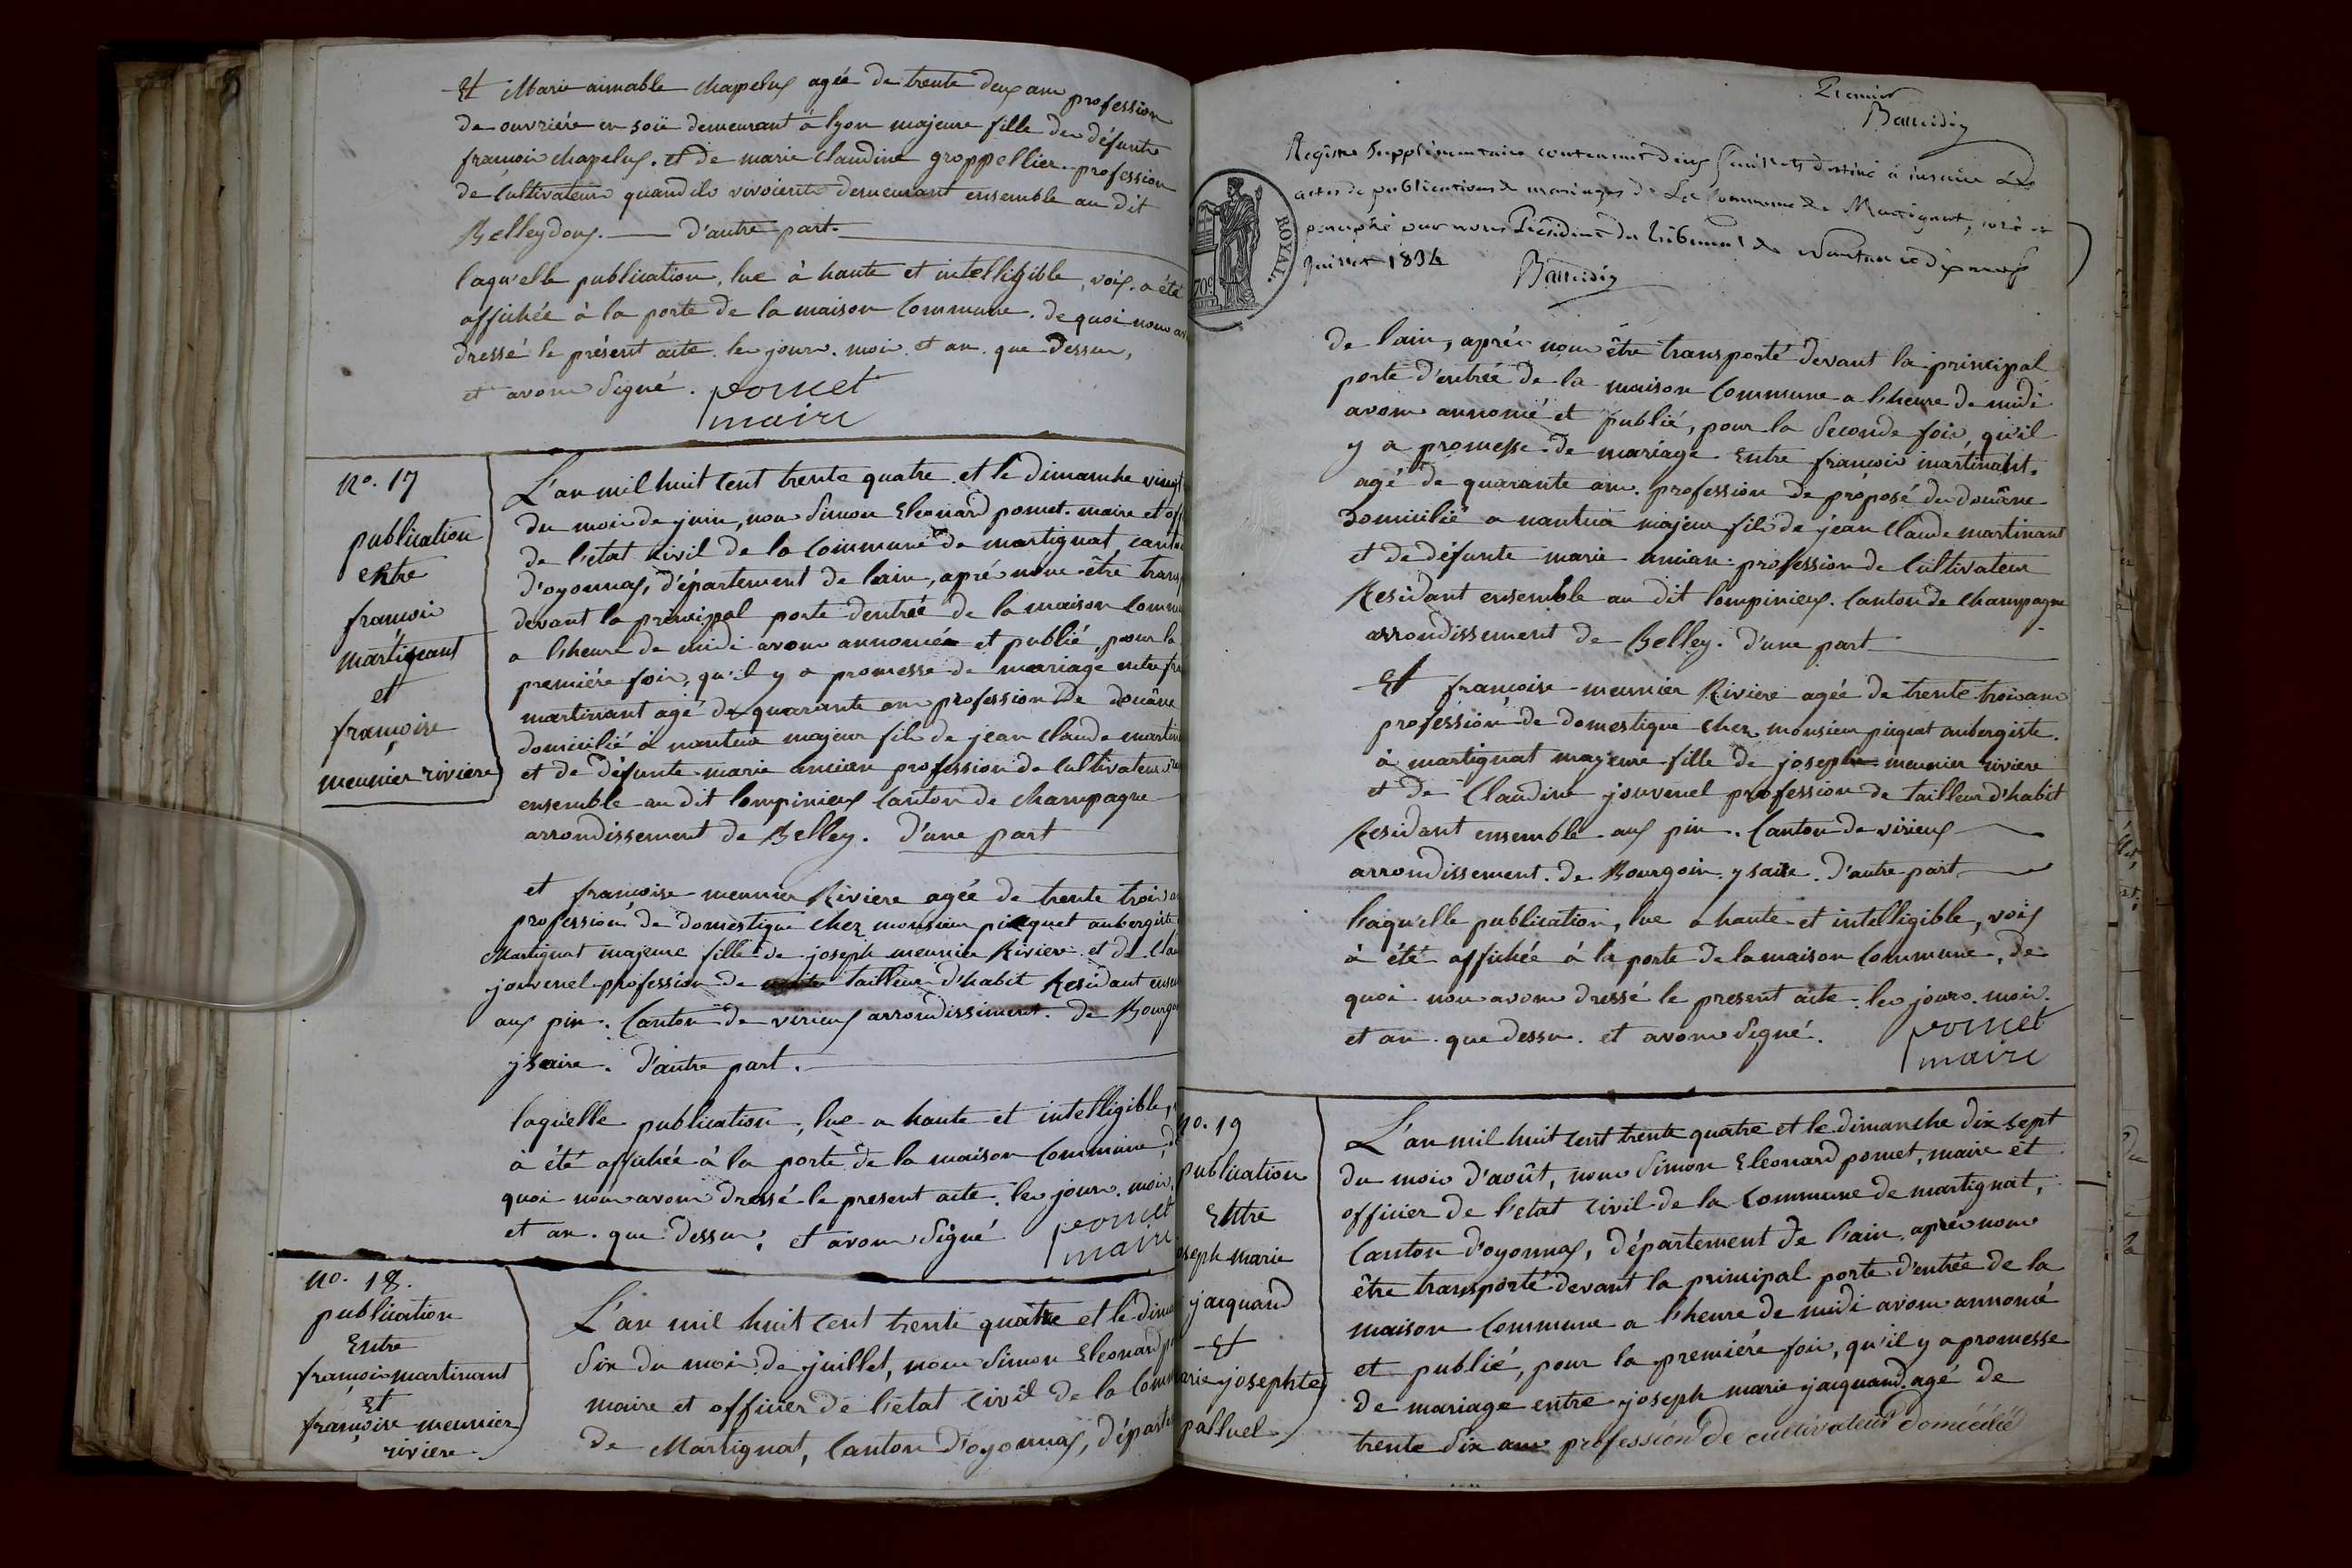 Et Marie aimable chapelux agée de trente deux ans profession
de ouvriére en soie demeurant à lyon majeure fille des défunts
françois chapelux. et de marie claudine groppellier. profession
de Cultivateurs quand ils vivoients demeurant ensemble au dit
Belleydoux. d'autre part.
laqu'elle publication, lue à haute et intelligible, voix. a été
affichée à la porte de la maison Commune. de quoi nous av
dressé le présent acte. les jours. mois. et an. que Dessus,
et avons Signé. pomet
maire
No. 17
publication
entre
françois
martinant
et
françoise
meunier riviere
L'an mil huit Cent trente quatre et le dimanche vingt
du mois de juin, nous Simon Eleonard pomet. maire et off
de l'etat Civil de la Commune de martignat canto
d'oyonnax, d'épartement de lain, aprés nous être trans
devant la principal porte dentrée de la maison Commu
a l'heure de midi avons annoncée et publié pour la
premiére fois, qu'il y a promesse de mariage entre fra
martinant agé de quarante ans profession De douâne
domicilié à nantua majeur fils de jean claude martin
et de défunte marie ancian profession de Cultivateur
ensemble au dit lompinieux Canton de champagne
arrondissement de Belley. d'une part
et françoise meunier Riviere agée de trente trois an
profession de domestique chez monsieur picquet aubergiste
Martignat majeure fille de joseph meunier Riviere et de Clau
jouvenel profession de tailleur d'habit Residant ensem
aux pin. Canton de virieux arrondissiment. de Bourgo
ysaire. d'autre part.
laqu'elle publication, lue a haute et intelligible,
à été affichée à la porte de la maison Commune, d
quoi nous avons dressé le present acte. les jours. mois.
et an. que Dessus. et avons Signé pomet
maire
No. 18.
publication
Entre
françois martinant
Et
françoise meunier
riviere
L'an mil huit Cent trente quatre et le dima
Six du mois de juillet, nous Simon Eleonard po
maire et officier de l'etat Civil de la Comm
de Martignat, Canton D'oyonnax, départe
Premier
Baudin
Registre Supplémentaire contenant deux feuillets destiné à inscrire les
actes de publications de mariages de la Commune de Martignat, coté et
paraphé par nous Président du tribunal de Nantua le dix neuf
juillet 1834
Baudin
ROYAL.
70c
de lain, aprés nous être transporté devant la principal
porte d'entrée de la maison Commune a l'heure de midi
avons annoncé et publié, pour la Seconde fois, qu'il
y a promesse de mariage Entre françois martinant.
agé de quarante ans. profession de préposé des douâne
Domicilié a nantua majeur fils de jean Claude martinant
et de défunte marie ancian. profession de Cultivateur
Residant ensemble au dit lompinieux. Canton de champagne
arrondissement de Belley. d'une part
Et françoise meunier Riviere agée de trente trois ans
profession de domestique chez monsieur piquet aubergiste.
à martignat majeure fille de joseph meunier riviere
et de Claudine jouvenel profession de tailleur d'habit
Residant ensemble aux pin. Canton de virieux
arrondissement. de Bourgoin ysaire. d'autre part
laqu'elle publication, lue a haute et intelligible, voix
à été affichée à la porte de la maison Commune, de
quoi nous avons dressé le present acte. les jours. mois.
et an que dessus. et avons Signé. pomet
maire
No. 19
publication
Entre
oseph marie
jacquand
Et
arie josephte
palluel
L'an mil huit Cent trente quatre et le dimanche dix sept
du mois d'août, nous Simon Eleonard pomet, maire et
officier de l'etat Civil de la Commune de martignat,
Canton d'oyonnax, département de l'ain, aprés nous
être transporté devant la principal porte d'entrée de la
maison Commune a l'heure de midi avons annoncé
et publié, pour la premiére fois, qu'il y a promesse
de mariage entre joseph marie jacquand agé de
trente Six ans profession de cultivateur Domicilié